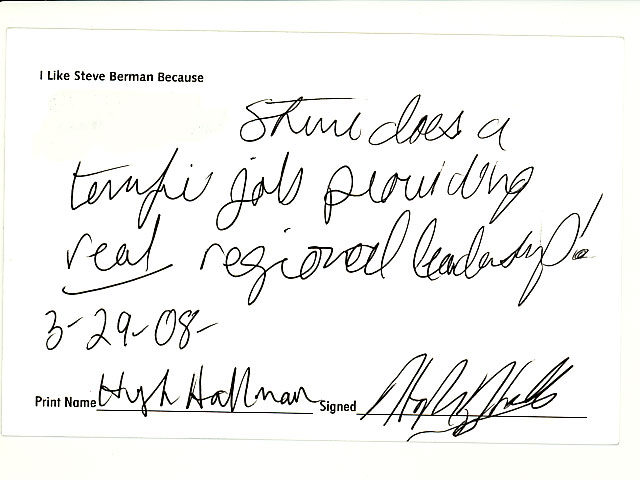 I Like Steve Berman Because
Steve does a
terrific job providing
real regional leadership!
3-29-08-
Print Name Hugh Hallman Signed